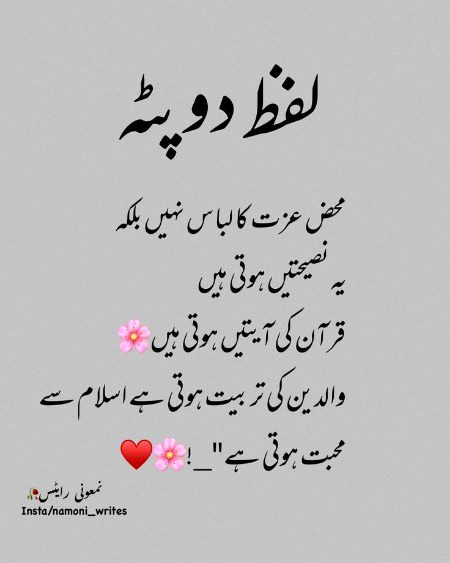 لفظ دوپٹہ
محض عزت کا لباس نہیں بلکہ
یہ نصیحتیں ہوتی ہیں
قرآن کی آیتیں ہوتی ہیں🌸
والدین کی تربیت ہوتی ہے اسلام سے
محبت ہوتی ہے"_!🌸♥️
نمعونی رایٹس🥀
Insta/namoni_writes